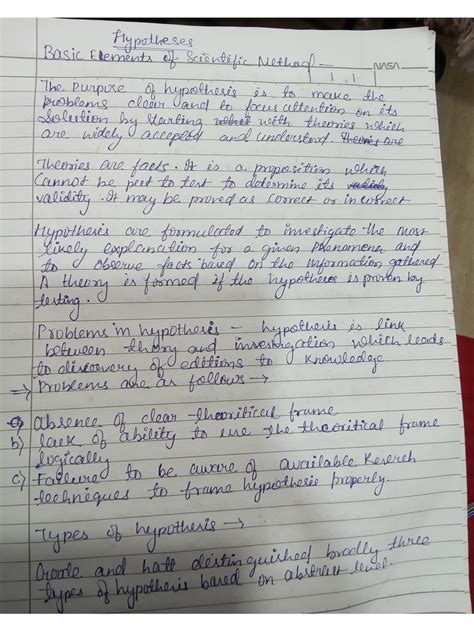 Hypotheses
Basic Elements of Scientific Method —
NASA
The purpose of hypothesis is to make the
problems clear and to focus attention on its
solution by starting with theories which
are widely accepted and understand. Theories are
Theories are facts. It is a proposition which
cannot be put to test to determine its validity
validity. It may be proved as correct or incorrect
Hypothesis are formulated to investigate the most
likely explanation for a given Phenomena and
to observe facts based on the information gathered
A theory is formed if the hypothesis is proven by
testing.
Problems in hypothesis – hypothesis is link
between theory and investigation which leads
to discovery of editions to knowledge
=> Problems are as follows →
a) absence of clear theoritical frame
b) lack of ability to use the theoritical frame
logically
c) Failure to be aware of available Reserch
techniques to frame hypothesis properly.
Types of hypothesis →
Goode and hatt distinguished bradly three
types of hypothesis based on abstract level.